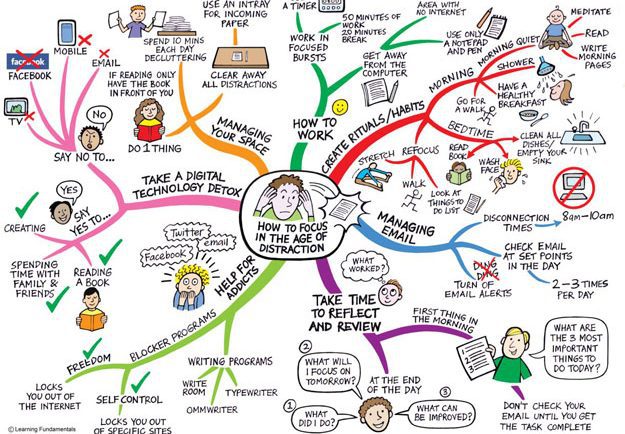 HOW TO FOCUS
IN THE AGE OF
DISTRACTION
MANAGING
YOUR SPACE
USE AN INTRAY
FOR INCOMING
PAPER
SPEND 10 MINS
EACH DAY
DECLUTTERING
CLEAR AWAY
ALL DISTRACTIONS
IF READING ONLY
HAVE THE BOOK
IN FRONT OF YOU
DO 1 THING
HOW TO
WORK
A TIMER
WORK IN
FOCUSED
BURSTS
50 MINUTES OF
WORK
20 MINUTES
BREAK
GET AWAY
FROM THE
COMPUTER
AREA WITH
NO INTERNET
USE ONLY
A NOTEPAD
AND PEN
CREATE RITUALS/HABITS
MORNING
MORNING QUIET
MEDITATE
READ
WRITE
MORNING
PAGES
SHOWER
HAVE A
HEALTHY
BREAKFAST
GO FOR
A WALK
BEDTIME
CLEAN ALL
DISHES/
EMPTY YOUR
SINK
READ
BOOK
WASH
FACE
REFOCUS
STRETCH
WALK
LOOK AT
THINGS TO
DO LIST
MANAGING
EMAIL
DISCONNECTION
TIMES
8am-10am
CHECK EMAIL
AT SET POINTS
IN THE DAY
2-3 TIMES
PER DAY
DING
DING
TURN OF
EMAIL ALERTS
TAKE TIME
TO REFLECT
AND REVIEW
WHAT
WORKED?
FIRST THING IN
THE MORNING
1
2
3
WHAT ARE
THE 3 MOST
IMPORTANT
THINGS TO
DO TODAY?
DON'T CHECK YOUR
EMAIL UNTIL YOU GET
THE TASK COMPLETE
AT THE END
OF THE DAY
1
WHAT
DID I DO?
2
WHAT WILL
I FOCUS ON
TOMORROW?
3
WHAT CAN
BE IMPROVED?
HELP FOR
ADDICTS
Twitter
email
Facebook
WRITING PROGRAMS
WRITE
ROOM
OMMWRITER
TYPEWRITER
BLOCKER PROGRAMS
FREEDOM
LOCKS YOU
OUT OF
THE INTERNET
SELF CONTROL
LOCKS YOU OUT
OF SPECIFIC SITES
TAKE A DIGITAL
TECHNOLOGY DETOX
SAY NO TO...
NO
facebook
FACEBOOK
MOBILE
EMAIL
TV
SAY
YES TO...
YES
CREATING
SPENDING
TIME WITH
FAMILY &
FRIENDS
READING
A BOOK
© Learning Fundamentals